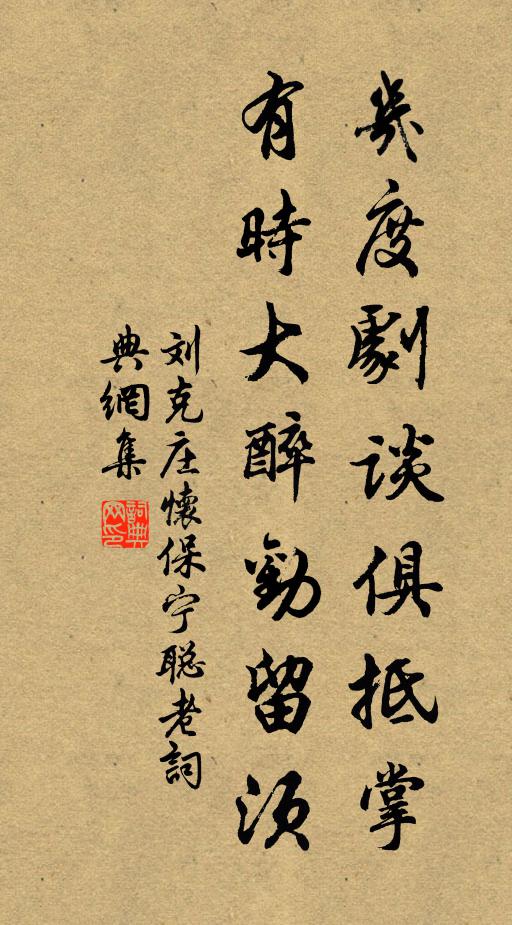 幾度劇談俱抵掌
有時大醉勸留須
刘克庄懷保宁聪老詞
典網集
詞典網印